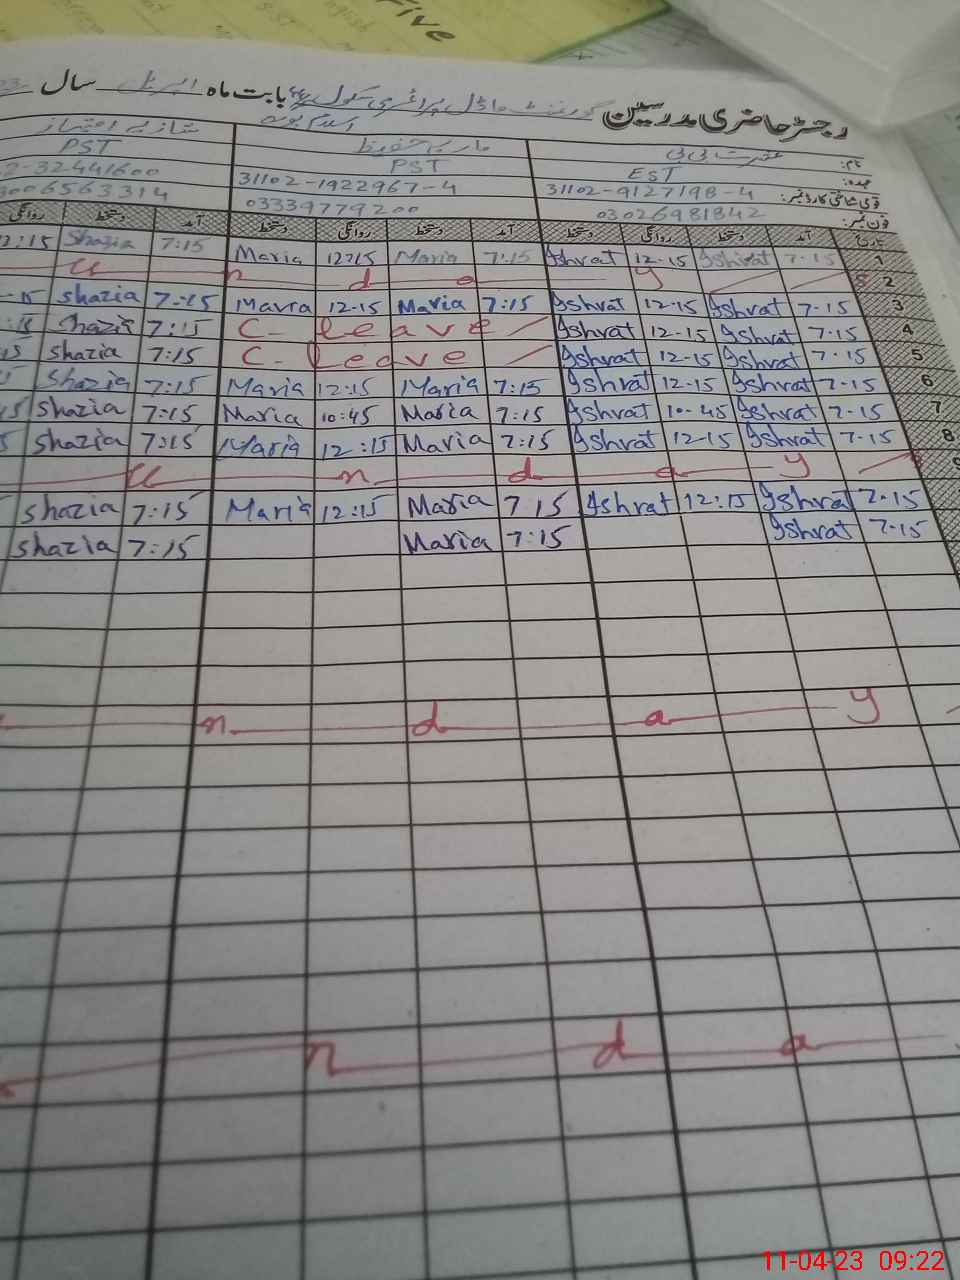 رجسٹر حاضری مدرسین گورنمنٹ ماڈل پرائمری سکول بابت ماہ اپریل سال
اسلام پورہ
نام: عشرت بی بی ماریہ حفیظ شازیہ امتیاز
عہدہ: EST PST PST
قومی شناختی کارڈ نمبر: 31102-9127198-4 31102-1922967-4 2-32441600
فون نمبر: 03026981842 03339779200 3006563314
تاریخ آمد دستخط روانگی دستخط آمد دستخط روانگی دستخط آمد دستخط روانگی
12:15 Shazia 7:15 Maria 12:15 Maria 7:15 Ishrat 12-15 Ishrat 7-15 1
u n d a y S 2
-15 Shazia 7:15 Maria 12-15 Maria 7:15 Ishrat 12-15 Ishrat 7-15 3
:15 Shazia 7:15 C- leave Ishrat 12-15 Ishrat 7-15 4
15 Shazia 7:15 C- leave Ishrat 12-15 Ishrat 7-15 5
5 Shazia 7:15 Maria 12:15 Maria 7:15 Ishrat 12-15 Ishrat 7-15 6
15 Shazia 7:15 Maria 10:45 Maria 7:15 Ishrat 10-45 Ishrat 7-15 7
5 Shazia 7:15 Maria 12:15 Maria 7:15 Ishrat 12-15 Ishrat 7-15 8
u n d a y 9
Shazia 7:15 Maria 12:15 Maria 7 15 Ishrat 12:15 Ishrat 7-15
Shazia 7:15 Maria 7:15 Ishrat 7-15
n d a y
n d a
11-04-23 09:22